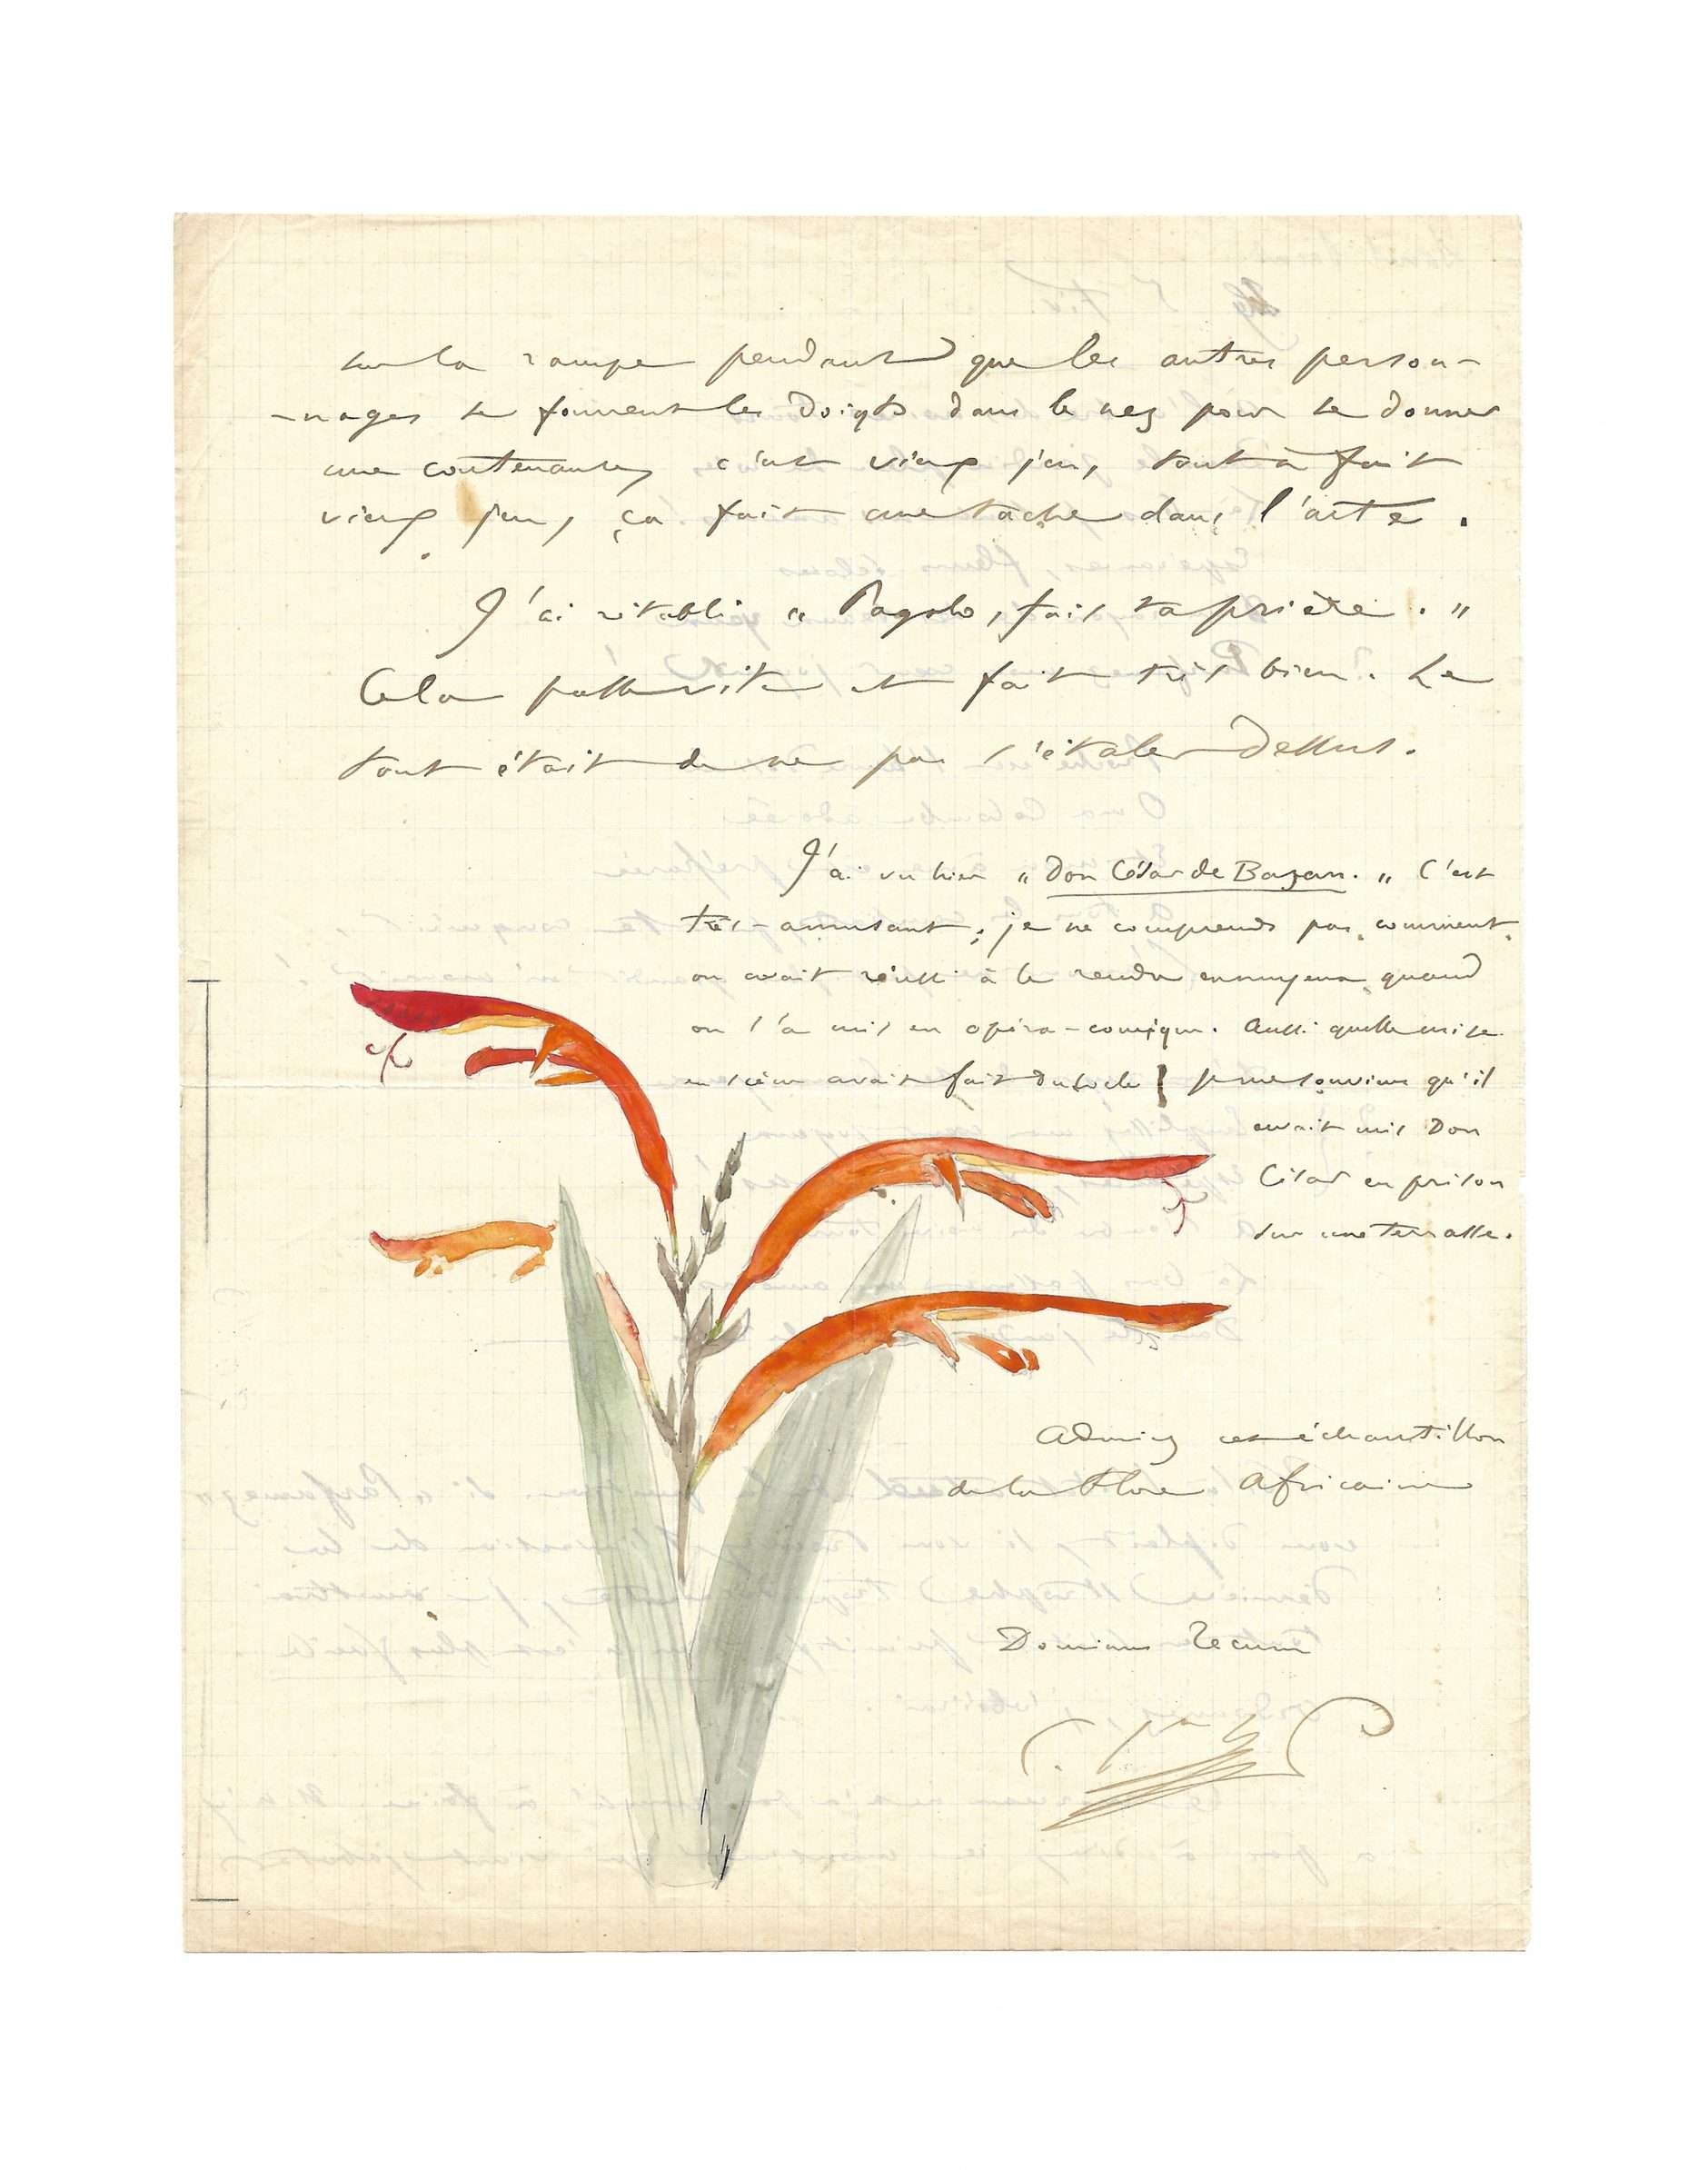 sur la rampe pendant que les autres person-
-nages se fourrent les doigts dans le nez pour se donner
une contenance, c'est vieux jeu, tout à fait
vieux jeu, ça fait une tache dans l'acte.
J'ai rétabli " Pagolo, fais ta prière. "
Cela passe vite et fait très bien. Le
tout était de ne pas s'étaler dessus.
J'ai vu hier " Don César de Bazan. " C'est
très-amusant ; je ne comprends pas comment
on avait réussi à le rendre ennuyeux quand
on l'a mis en opéra-comique. Aussi quelle mise
en scène avait fait du Locle ! je me souviens qu'il
avait mis Don
César en prison
sur une terrasse.
Admirez cet échantillon
de la Flore Africaine
Dominus Tecum